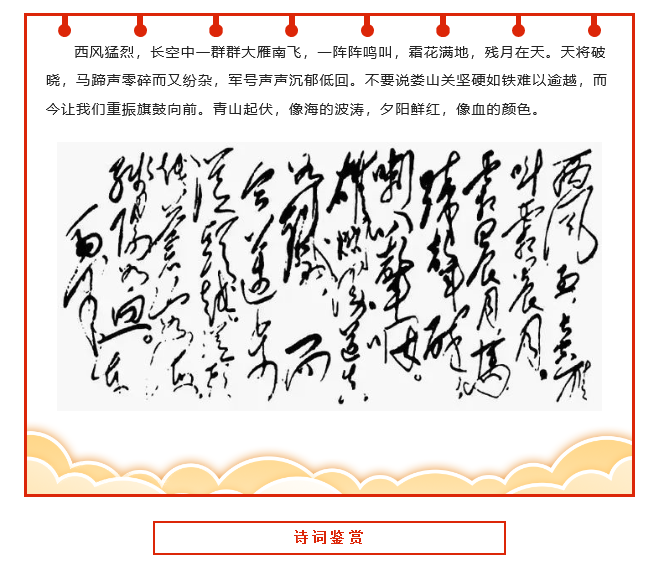 西风猛烈，长空中一群群大雁南飞，一阵阵鸣叫，霜花满地，残月在天。天将破
晓，马蹄声零碎而又纷杂，军号声声沉郁低回。不要说娄山关坚硬如铁难以逾越，而
今让我们重振旗鼓向前。青山起伏，像海的波涛，夕阳鲜红，像血的颜色。
西风烈长空雁
叫霜晨月。
霜晨月马
蹄声碎
喇叭声咽。
雄关漫道真
如铁而
今迈步
从头越从头
越苍山如海
残阳如血。
诗词鉴赏